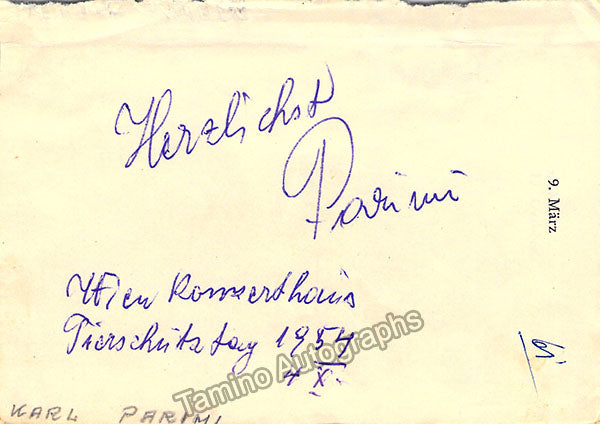 Herzlichst
Parimi
9. März
Wien Konzerthaus
Tierschutztag 1954
4 X.
Tamino Autographs
KARL PARIMI